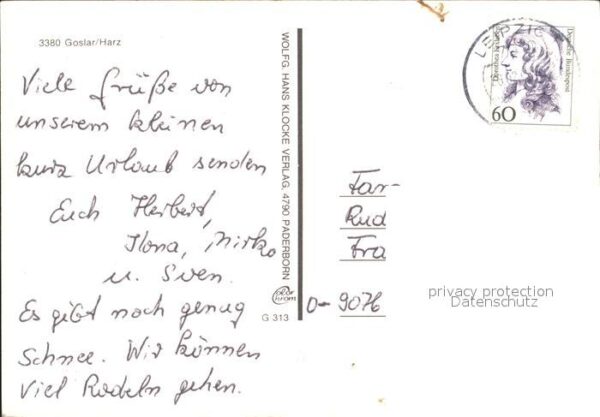 3380 Goslar/Harz
Viele Grüße von
unserem kleinen
kurz Urlaub senden
Euch Herbert,
Ilona, Mirko
u. Sven.
Es gibt noch genug
Schnee. Wir können
viel Rodeln gehen.
WOLFG. HANS KLOCKE VERLAG, 4790 PADERBORN
color
chrom
G 313
LEIPZIG
Deutsche Bundespost
60
Far-
Rud
Fra
O-9076
privacy protection
Datenschutz